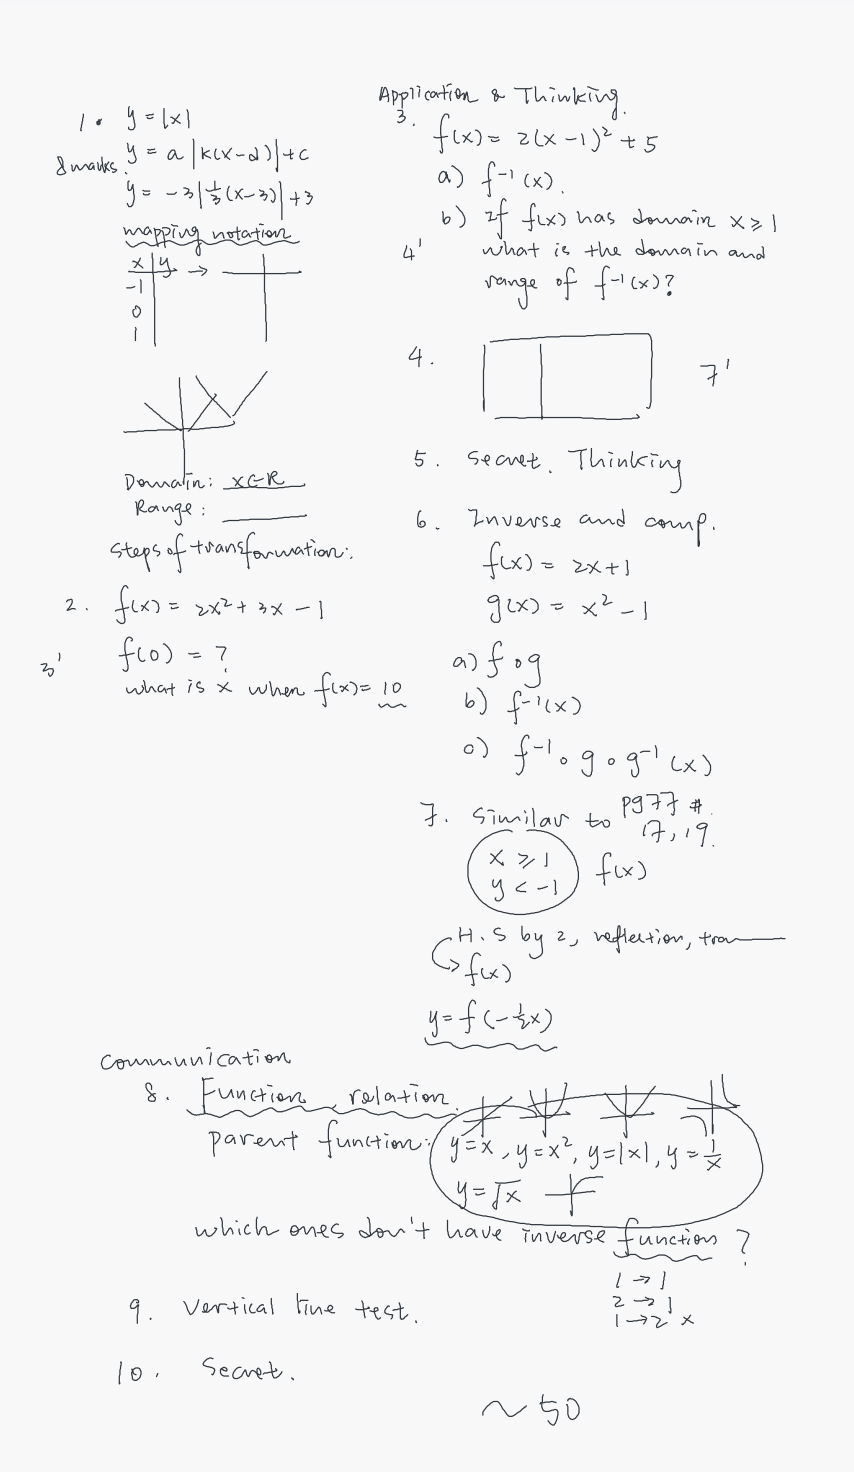 1. y = |x|
8 marks. y = a |k(x-d)|+c
y = -3|⅓(x-3)|+3
mapping notation
x | y →
-1
0
1
Domain: x∈R
Range:
Steps of transformation:
2. f(x) = 2x²+ 3x -1
3' f(0) = ?
what is x when f(x)= 10
Application & Thinking.
3. f(x) = 2(x-1)² + 5
a) f⁻¹(x).
b) If f(x) has domain x ≥ 1
4' what is the domain and
range of f⁻¹(x)?
4. 7'
5. Secret. Thinking
6. Inverse and comp.
f(x) = 2x+1
g(x) = x² - 1
a) f∘g
b) f⁻¹(x)
c) f⁻¹∘g∘g⁻¹(x)
7. Similar to pg77 #
17, 19.
x ≥ 1
y < -1
f(x)
H.S by 2, reflection, tra
→ f(x)
y = f(-½x)
Communication
8. Function, relation.
parent function: y=x, y=x², y=|x|, y=1/x
y=√x
which ones don't have inverse function?
1 → 1
2 → 1
1 → 2 x
9. Vertical line test.
10. Secret.
~ 50